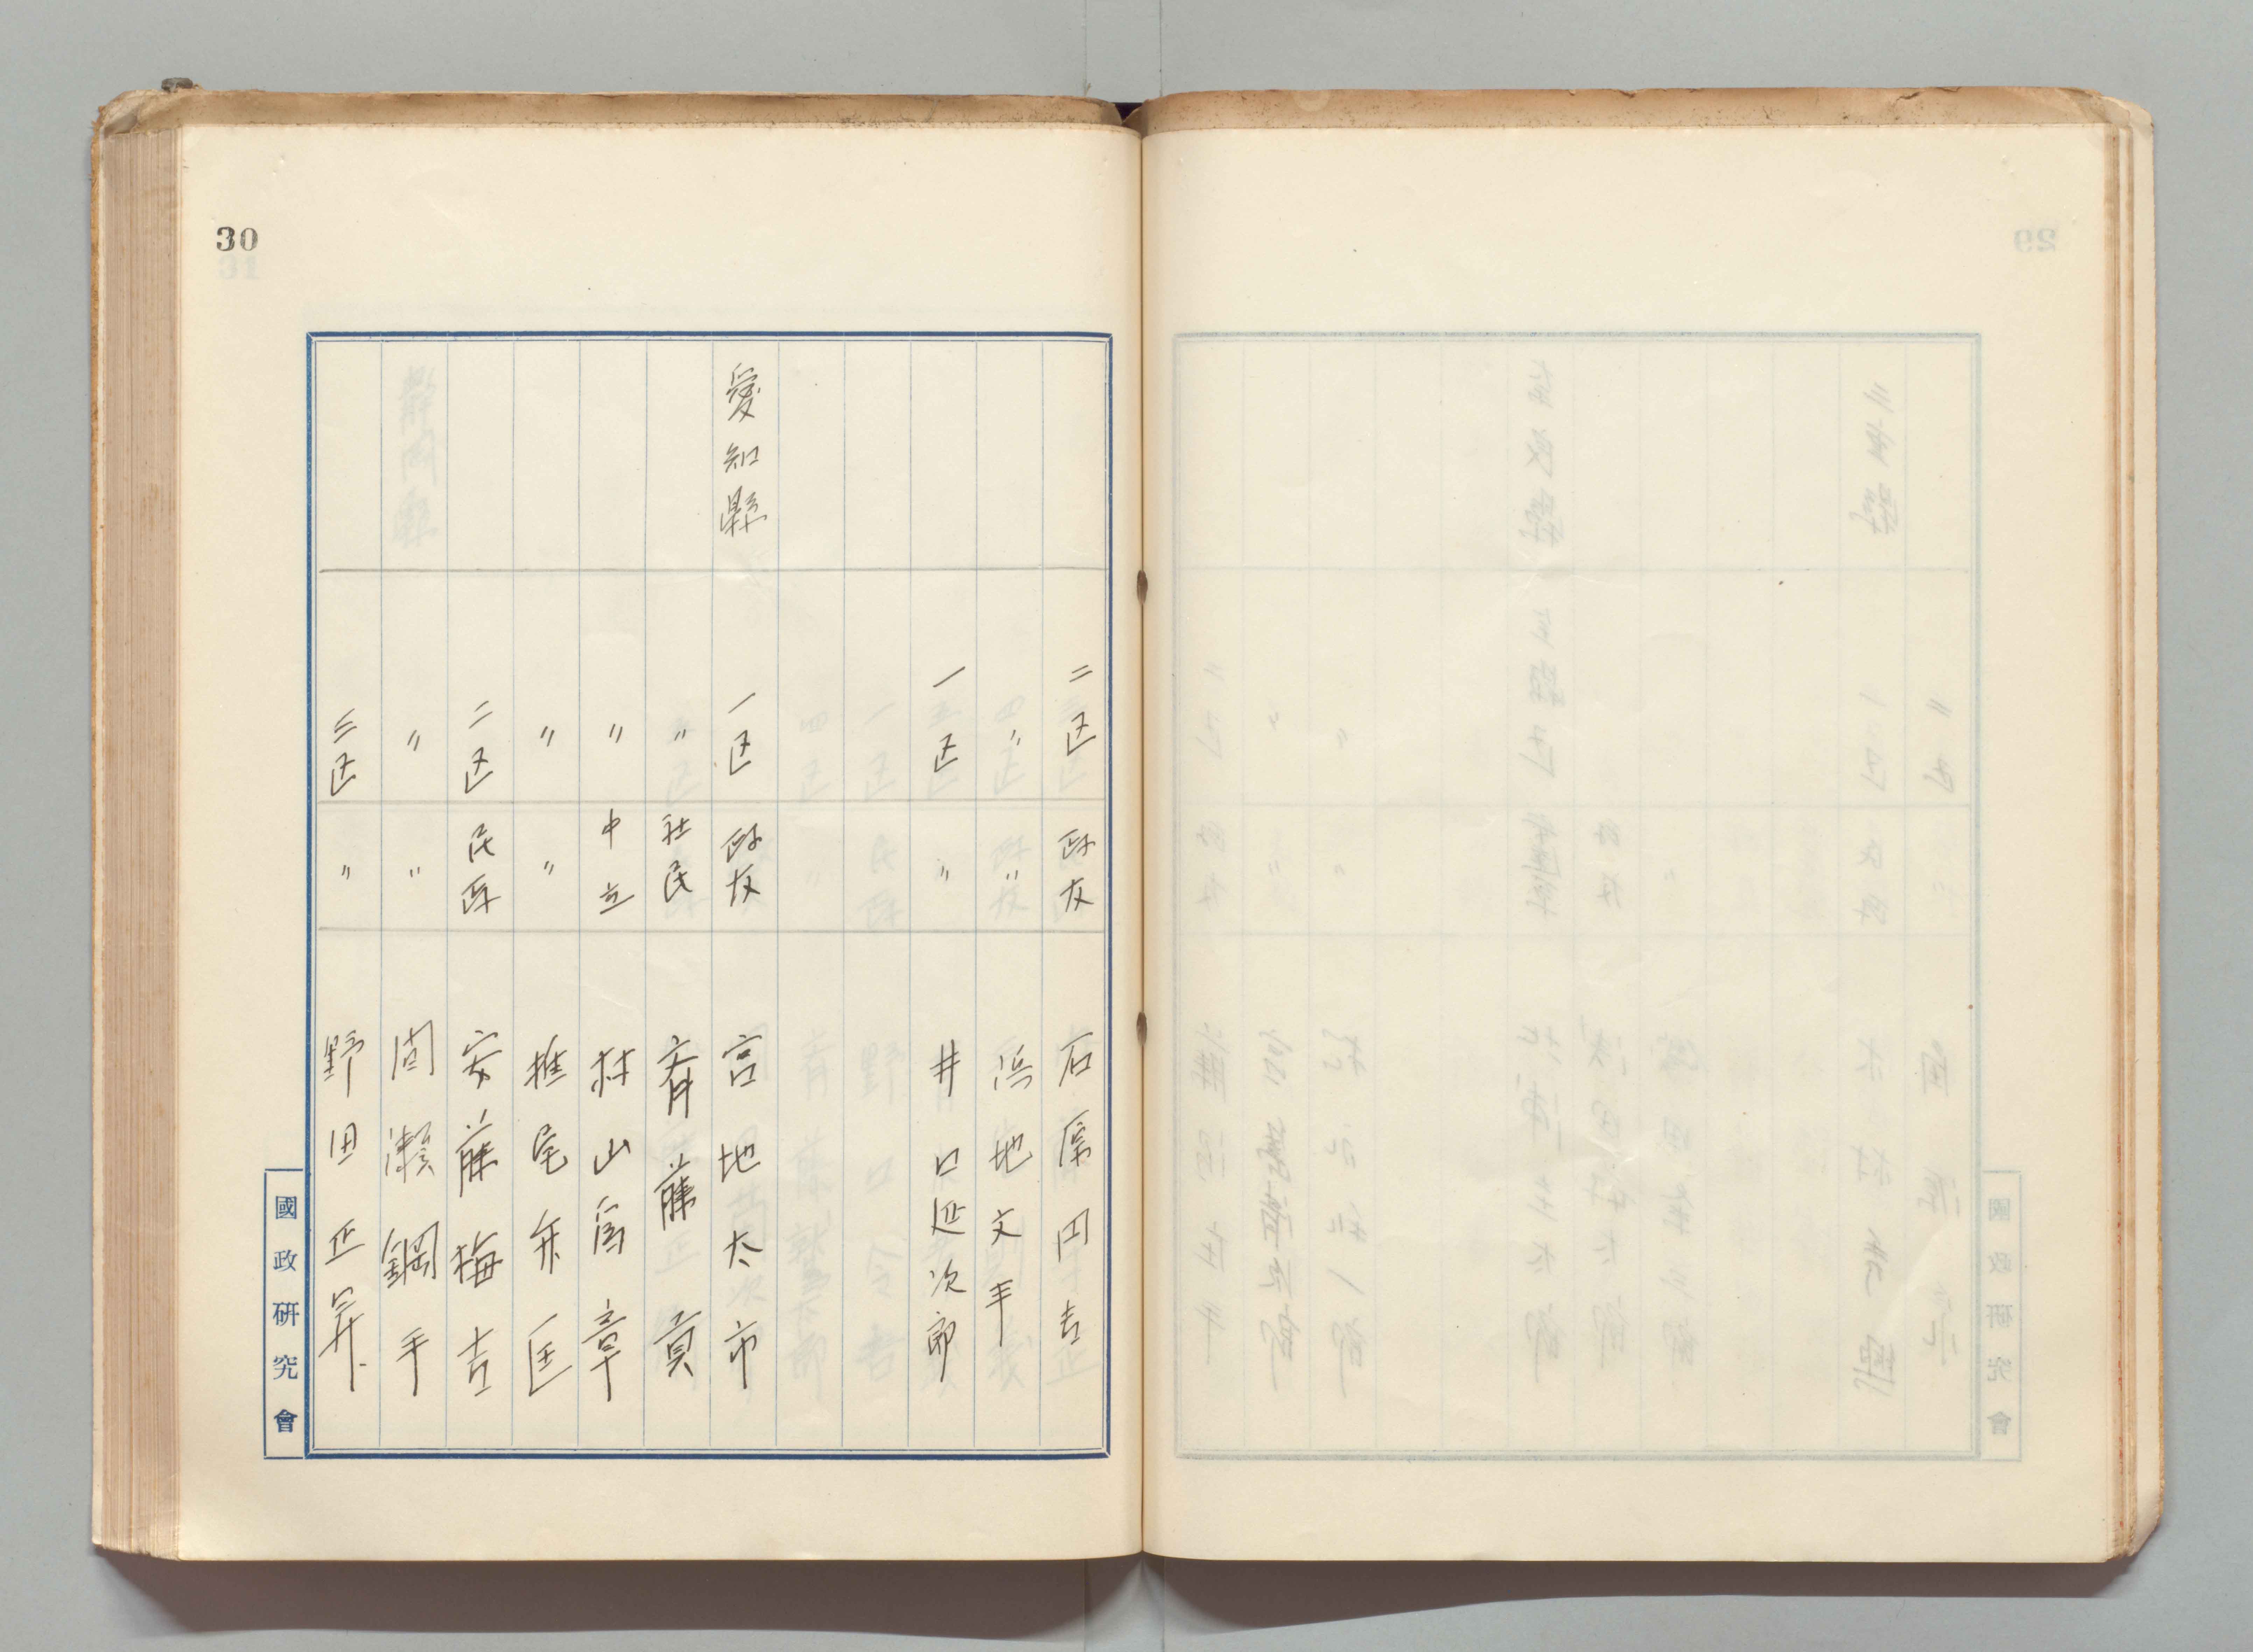 30
二区 政友 石原円吉
〃 〃 浜地文平
一区 〃 井口延次郎
愛知縣 一区 政友 宮地太市
〃 社民 斉藤貢
〃 中立 林山富章
〃 〃 椎尾弁匡
二区 民政 安藤梅吉
〃 〃 間瀬鋼平
三区 〃 野田正昇
國政研究會